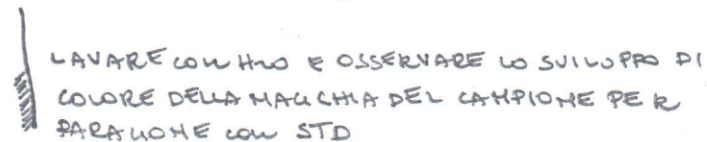 LAVARE CON H2O E OSSERVARE LO SVILUPPO DI
COLORE DELLA MACCHIA DEL CAMPIONE PER
PARAGONE CON STD